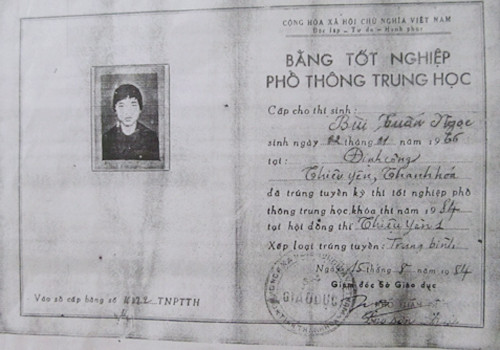 CỘNG HÒA XÃ HỘI CHỦ NGHĨA VIỆT NAM
Độc lập - Tự do - Hạnh phúc
BẰNG TỐT NGHIỆP
PHỔ THÔNG TRUNG HỌC
Cấp cho thí sinh:
Bùi Xuân Ngọc
sinh ngày 02 tháng 11 năm 1966
tại: Định Công
Thiệu Yên, Thanh Hóa
đã trúng tuyển kỳ thi tốt nghiệp phổ
thông trung học, khóa thi năm 1984
tại hội đồng thi Thiệu Yên 1
Xếp loại trúng tuyển: Trung bình
Ngày 15 tháng 5 năm 1984
Giám đốc Sở Giáo dục
GIÁO DỤC
Vào sổ cấp bằng số TNPTTH